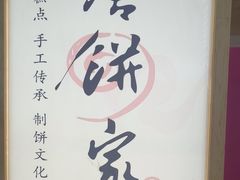 餅家
糕点 手工传承 制饼文化